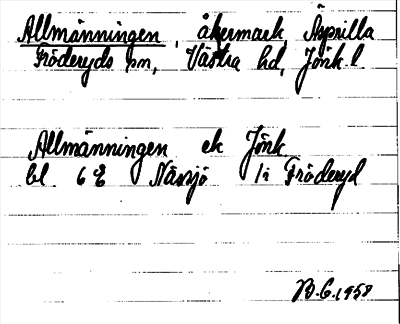 Allmänningen, åkermark Äsprilla
Fröderyds sn, Västra hd, Jönk. l
Allmänningen ek Jönk
bl 6 E Nässjö 1:a Fröderyd
B. G. 1958